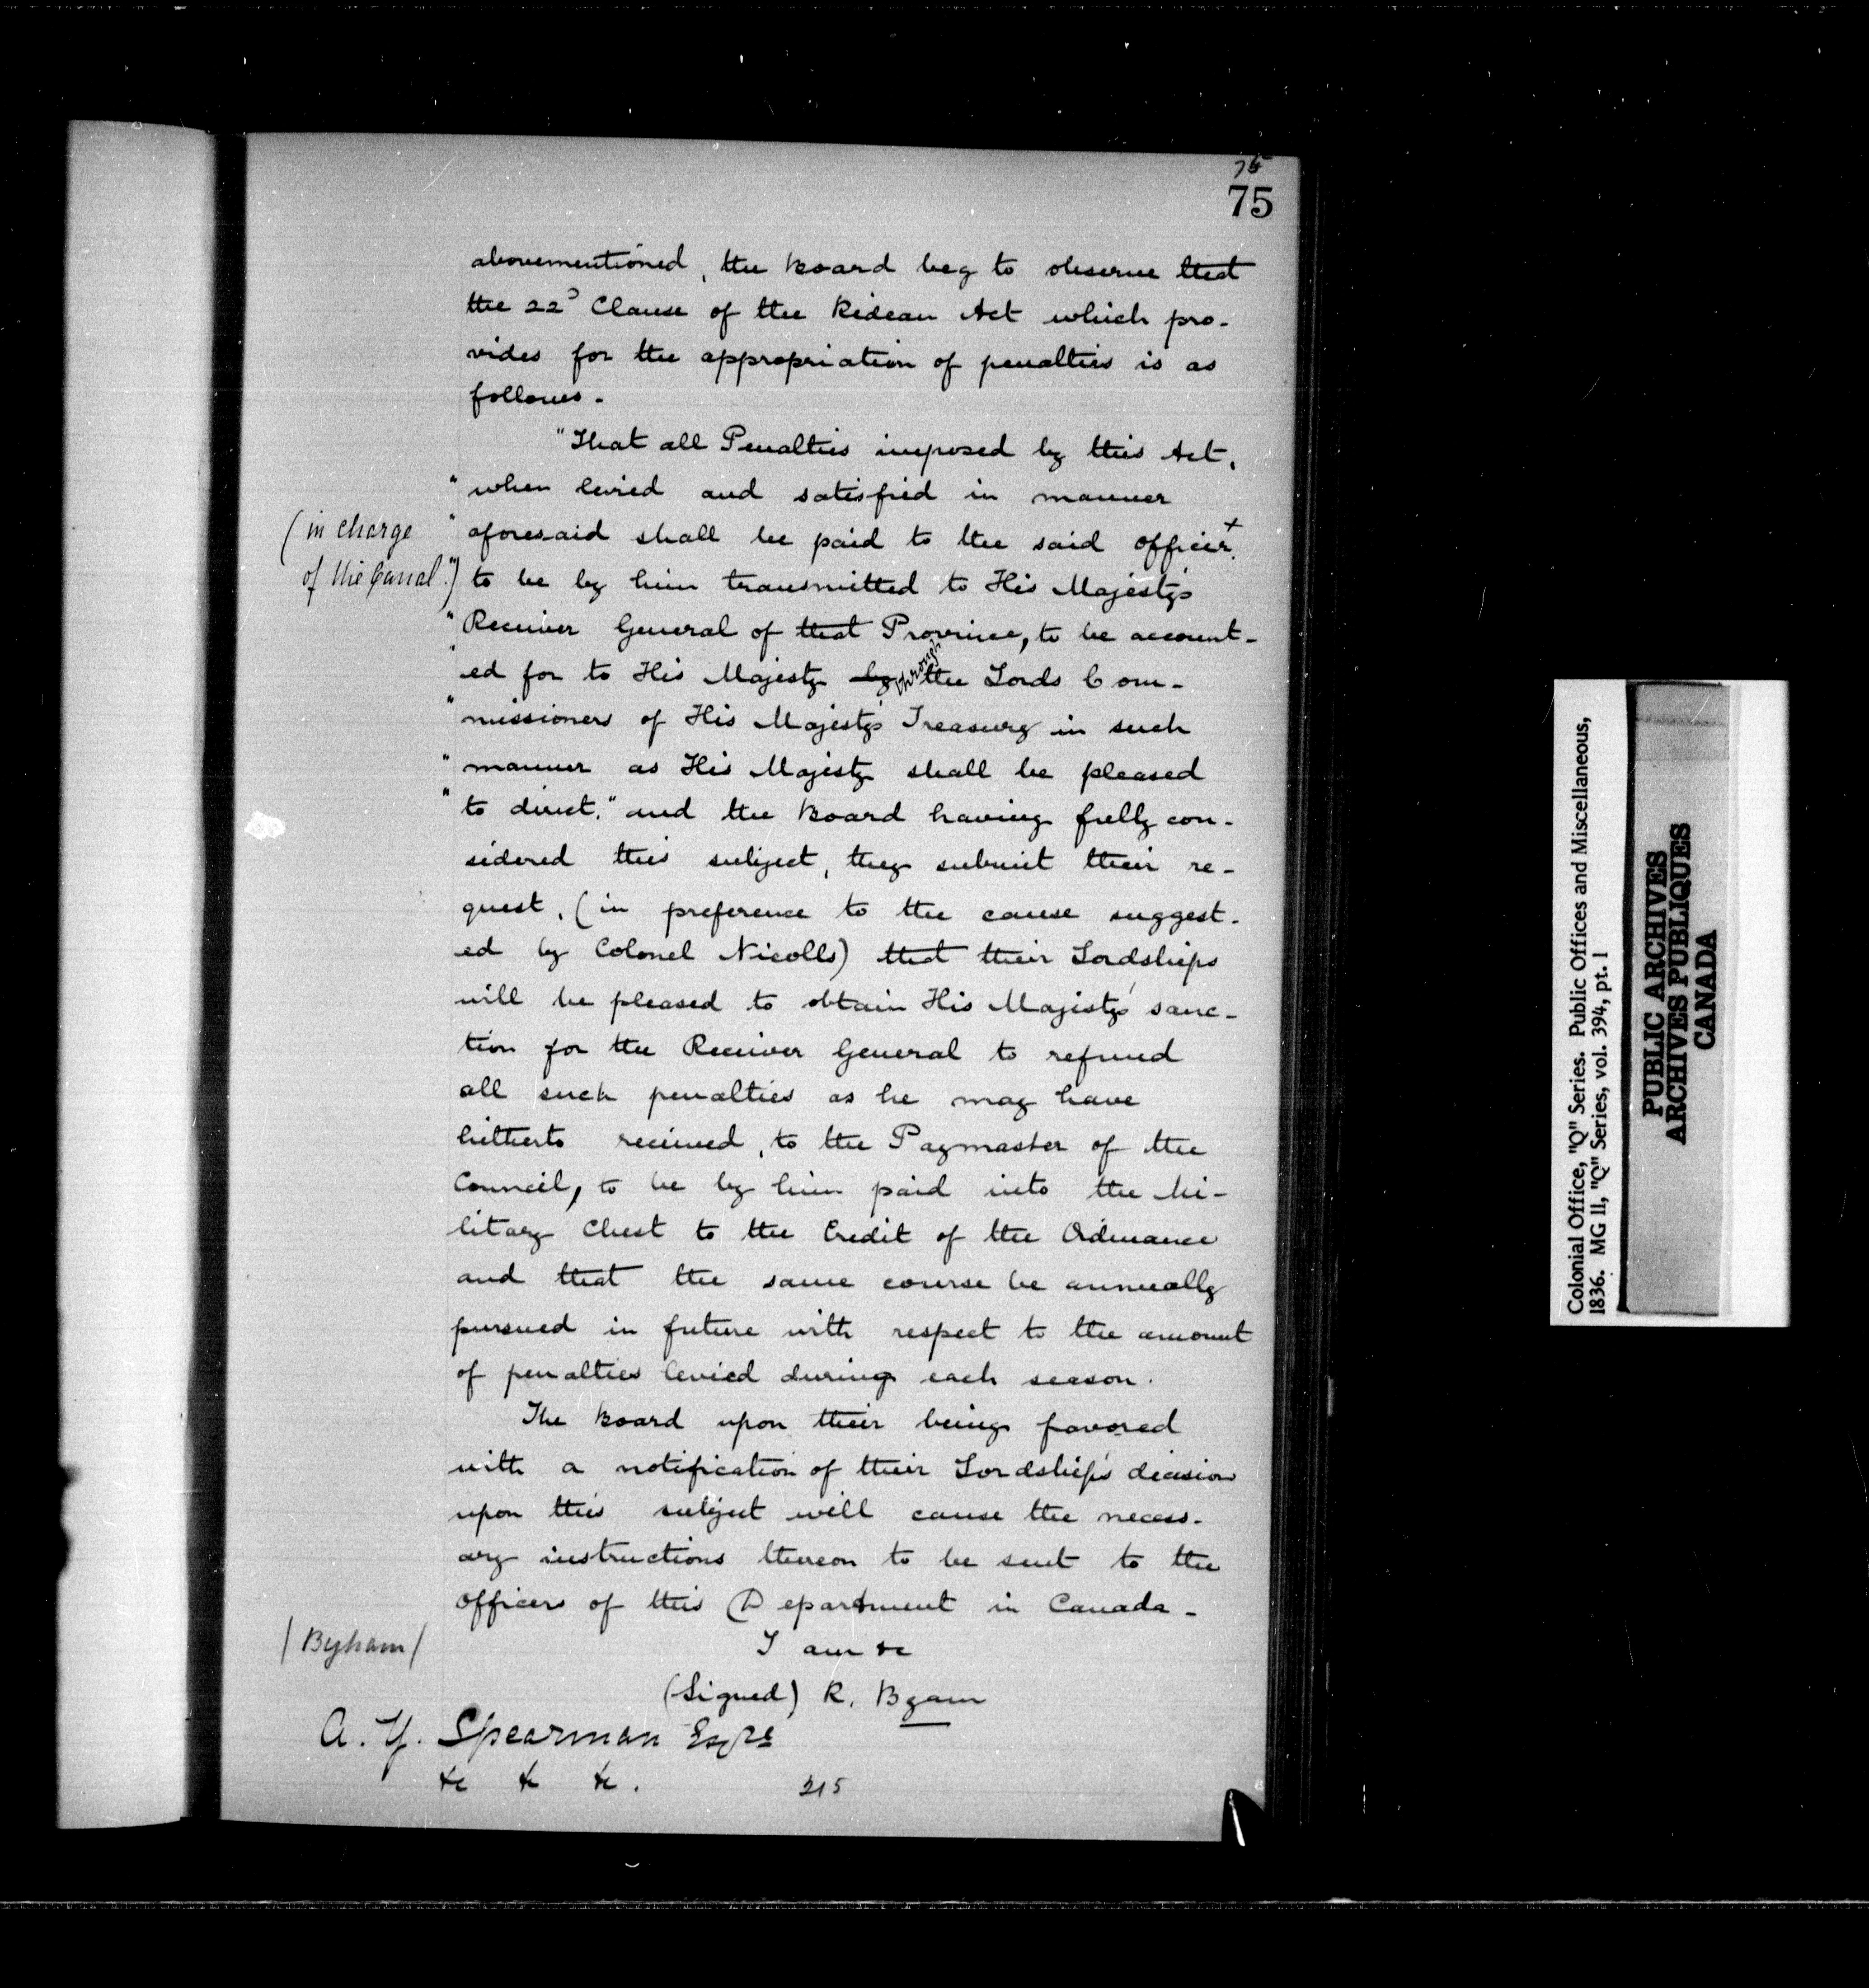 75
75
abovementioned, the Board beg to observe that
the 22d Clause of the Rideau Act which pro-
vides for the appropriation of penalties is as
follows.
"That all Penalties imposed by this Act,
"when levied and satisfied in manner
"aforesaid shall be paid to the said officer+
(in charge
of the Canal.")
to be by him transmitted to His Majesty's
"Receiver General of that Province, to be account-
"ed for to His Majesty by through the Lords Com-
"missioners of His Majesty's Treasury in such
"manner as His Majesty shall be pleased
"to direct." and the Board having fully con-
sidered this subject, they submit their re-
quest, (in preference to the cause suggest-
ed by Colonel Nicolls) that their Lordships
will be pleased to obtain His Majesty's sanc-
tion for the Receiver General to refund
all such penalties as he may have
hitherto received, to the Paymaster of the
Council, to be by him paid into the Mi-
litary Chest to the Credit of the Ordnance
and that the same course be annually
pursued in future with respect to the amount
of penalties levied during each season.
The Board upon their being favored
with a notification of their Lordship's decision
upon this subject will cause the necess-
ary instructions thereon to be sent to the
officers of this Department in Canada-
I am &c
/Byham/
(Signed) R. Byam
A. Y. Spearman Esqre
&c & &c.
215
Colonial Office, "Q" Series. Public Offices and Miscellaneous,
1836. MG 11, "Q" Series, vol. 394, pt. 1
PUBLIC ARCHIVES
ARCHIVES PUBLIQUES
CANADA